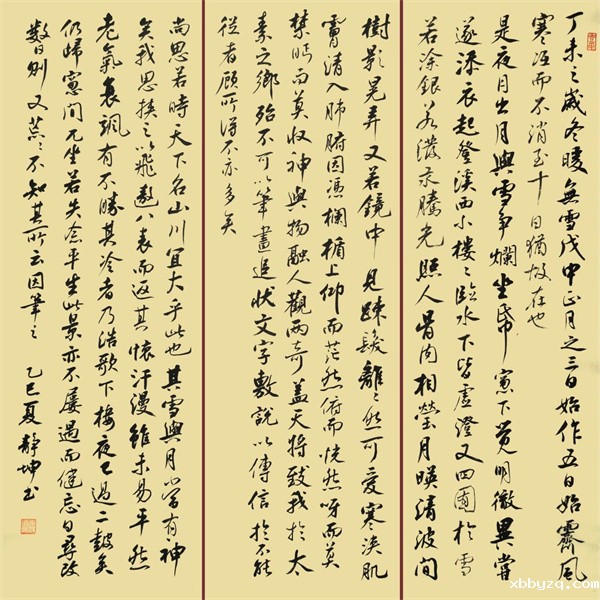 丁未之歲冬暖無雪戊申正月之三日始作五日始霽風
寒冱而不消至十日猶故在也
是夜月出月與雪爭爛坐帋窗下覺明徹異常
遂添衣起登溪西小樓樓臨水下皆虛澄又四圍於雪
若塗銀若潑汞騰光照人骨肉相瑩月映清波間
樹影晃弄又若鏡中見疎髮離離然可愛寒浹肌
膚清入肺腑因憑欄楯上仰而茫然俯而恍然呀而莫
禁眄而莫收神與物融人觀兩奇蓋天將致我於太
素之鄉殆不可以筆畫追狀文字敷說以傳信於不能
從者顧所得不亦多矣
尚思若時天下名山川宜大乎此也其雪與月當有神
矣我思挾之以飛遨八表而返其懷汗漫雖未易平然
老氣裏颯有不勝其冷者乃浩歌下樓夜已過二鼓矣
仍歸窗間兀坐若失念平生此景亦不屢遇而健忘日尋改
數日則又荒荒不知其所云因筆之
乙巳夏靜坤書
xbbyzq.com